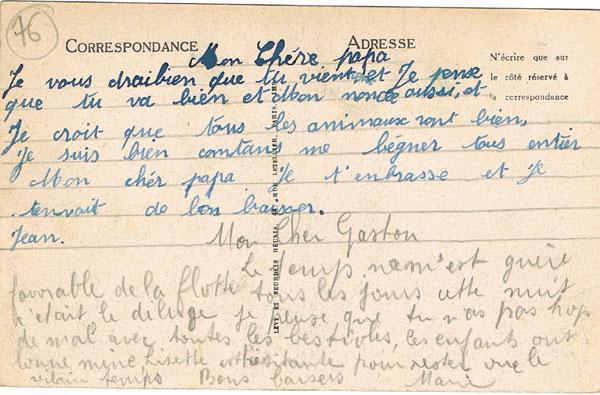 76
CORRESPONDANCE
ADRESSE
N'écrire que sur
le côté réservé à
la correspondance
Mon Chére papa
Je vous draibien que tu vient et Je pense
que tu va bien et Mon nonce aussi, et
Je croit que tous les animaux vont bien,
je suis bien contans me bégner tous entier
Mon chér papa Je t'enbrasse et Je
tenvoit de bon baisser.
Jean.
LÉVY ET NEURDEIN RÉUNIS, 44, RUE LETELLIER, PARIS
Mon Cher Gaston
Le temps m'est guère
favorable de la flotte tous les jours cette nuit
c'était le déluge je pense que tu n'as pas trop
de mal avec toutes les bestioles, les enfants ont
bonne mine Lisette est hésitante pour rester vue le
vilain temps Bons baisers Marie